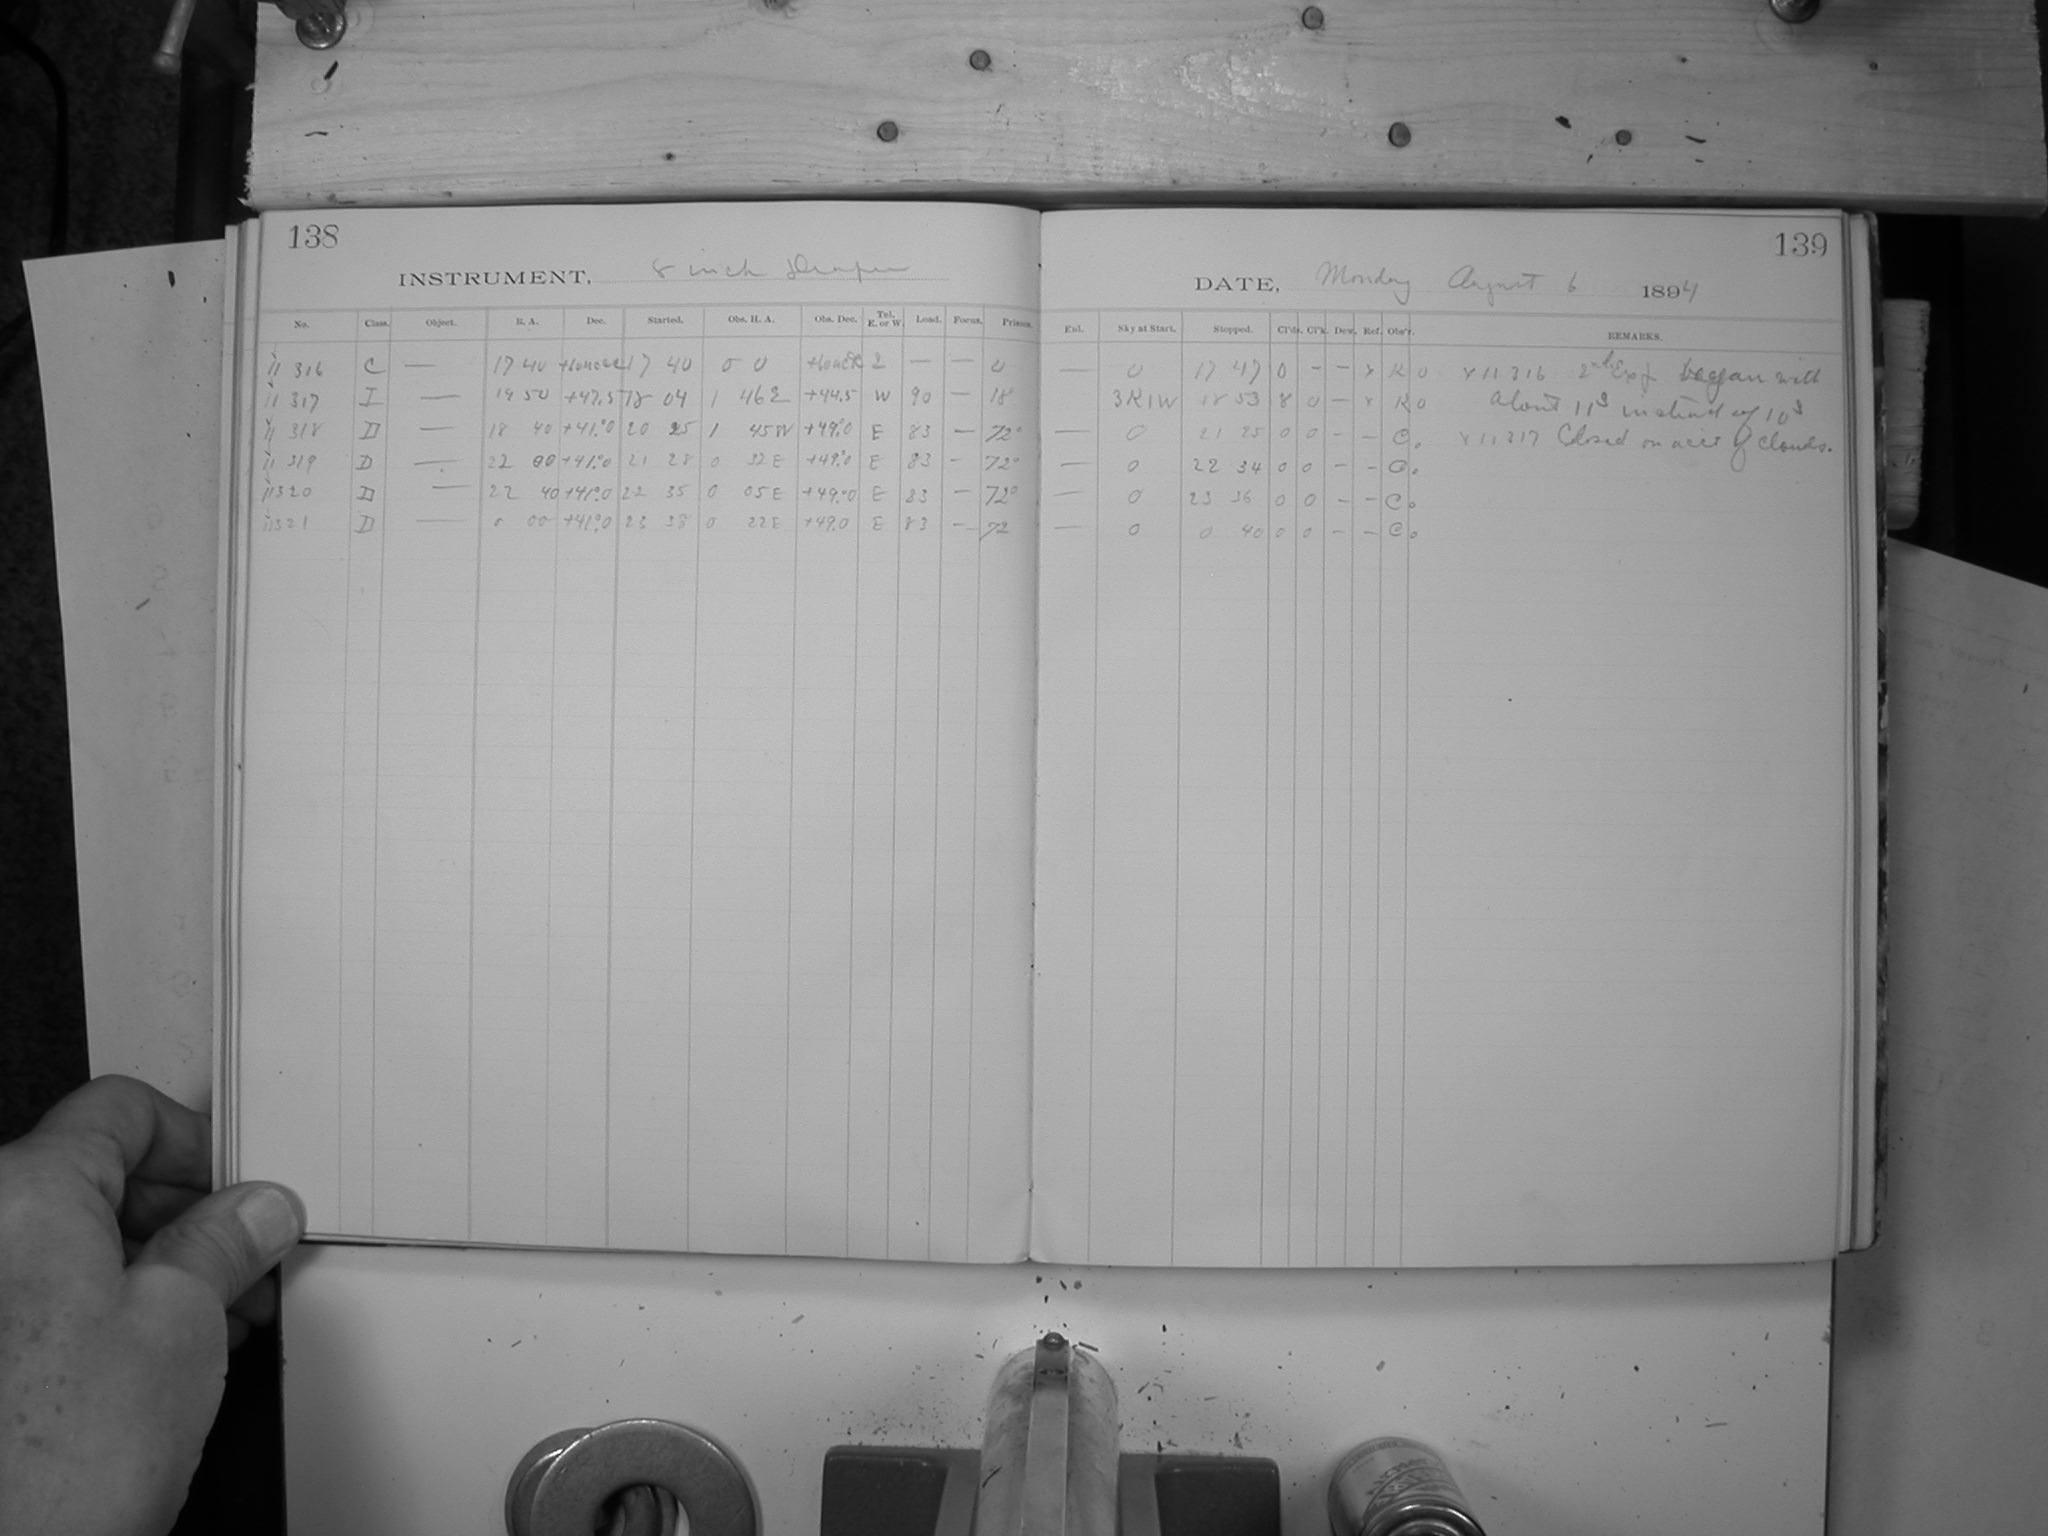 138
INSTRUMENT, 8 inch Draper
No. Class. Object. R. A. Dec. Started. Obs. H. A. Obs. Dec. Tel. E. or W. Load. Focus. Prisms.
11 316 C — 17 40 17 40 0 0 — — 0
11 317 I — 19 50 +47.5 18 04 1 46 E +44.5 W 90 — 18
11 318 D — 18 40 +41.0 20 25 1 45 W +49.0 E 83 — 72°
11 319 D — 22 00 +41.0 21 28 0 32 E +49.0 E 83 — 72°
11320 D — 22 40 +41.0 22 35 0 05 E +49.0 E 83 — 72°
11321 D — 0 00 +41.0 23 38 0 22 E +49.0 E 83 — 72
139
DATE, Monday August 6 1894
Enl. Sky at Start. Stopped. Cl'ds. Cl'k. Dew. Ref. Obs'r. REMARKS.
— 0 17 47 0 — — x R 0 x 11 316 2nd Exp began with
3R1W 18 53 8 0 — x R 0 about 11s instead of 10s
— 0 21 25 0 0 — — C. x 11 317 Closed on acct of clouds.
— 0 22 34 0 0 — — C.
— 0 23 36 0 0 — — C.
— 0 0 40 0 0 — — C.